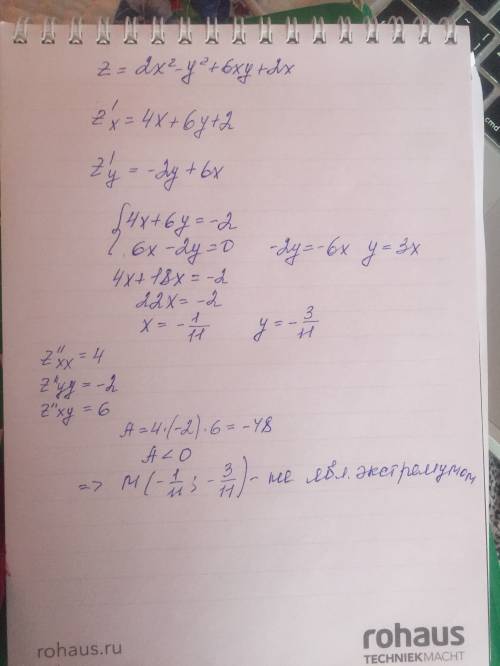 z = 2x² - y² + 6xy + 2x
z'x = 4x + 6y + 2
z'y = -2y + 6x
{ 4x + 6y = -2
6x - 2y = 0 -2y = -6x y = 3x
4x + 18x = -2
22x = -2
x = -1/11 y = -3/11
z''xx = 4
z''yy = -2
z''xy = 6
A = 4·(-2)·6 = -48
A < 0
=> M(-1/11; -3/11) - не явл. экстремумом
rohaus.ru
rohaus
TECHNIEKMACHT
cmd